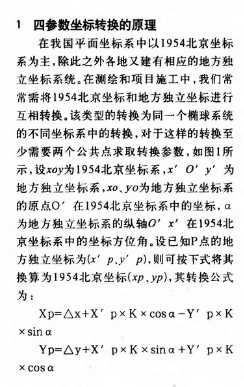 1 四参数坐标转换的原理
在我国平面坐标系中以1954北京坐标
系为主,除此之外各地又建有相应的地方独
立坐标系统。在测绘和项目施工中,我们常
常需将1954北京坐标和地方独立坐标进行
互相转换。该类型的转换为同一个椭球系统
的不同坐标系中的转换,对于这样的转换至
少需要两个公共点求取转换参数,如图1所
示,设xoy为1954北京坐标系,x′O′y′为
地方独立坐标系,xo、yo为地方独立坐标系
的原点O′在1954北京坐标系中的坐标,α
为地方独立坐标系的纵轴O′x′在1954北
京坐标系中的坐标方位角。设已知P点的地
方独立坐标为(x′p,y′p),则可按下式将其
换算为1954北京坐标(xp,yp),其转换公式
为:
Xp=△x+X′p×K×cosα-Y′p×K
×sinα
Yp=△y+X′p×K×sinα+Y′p×K
×cosα